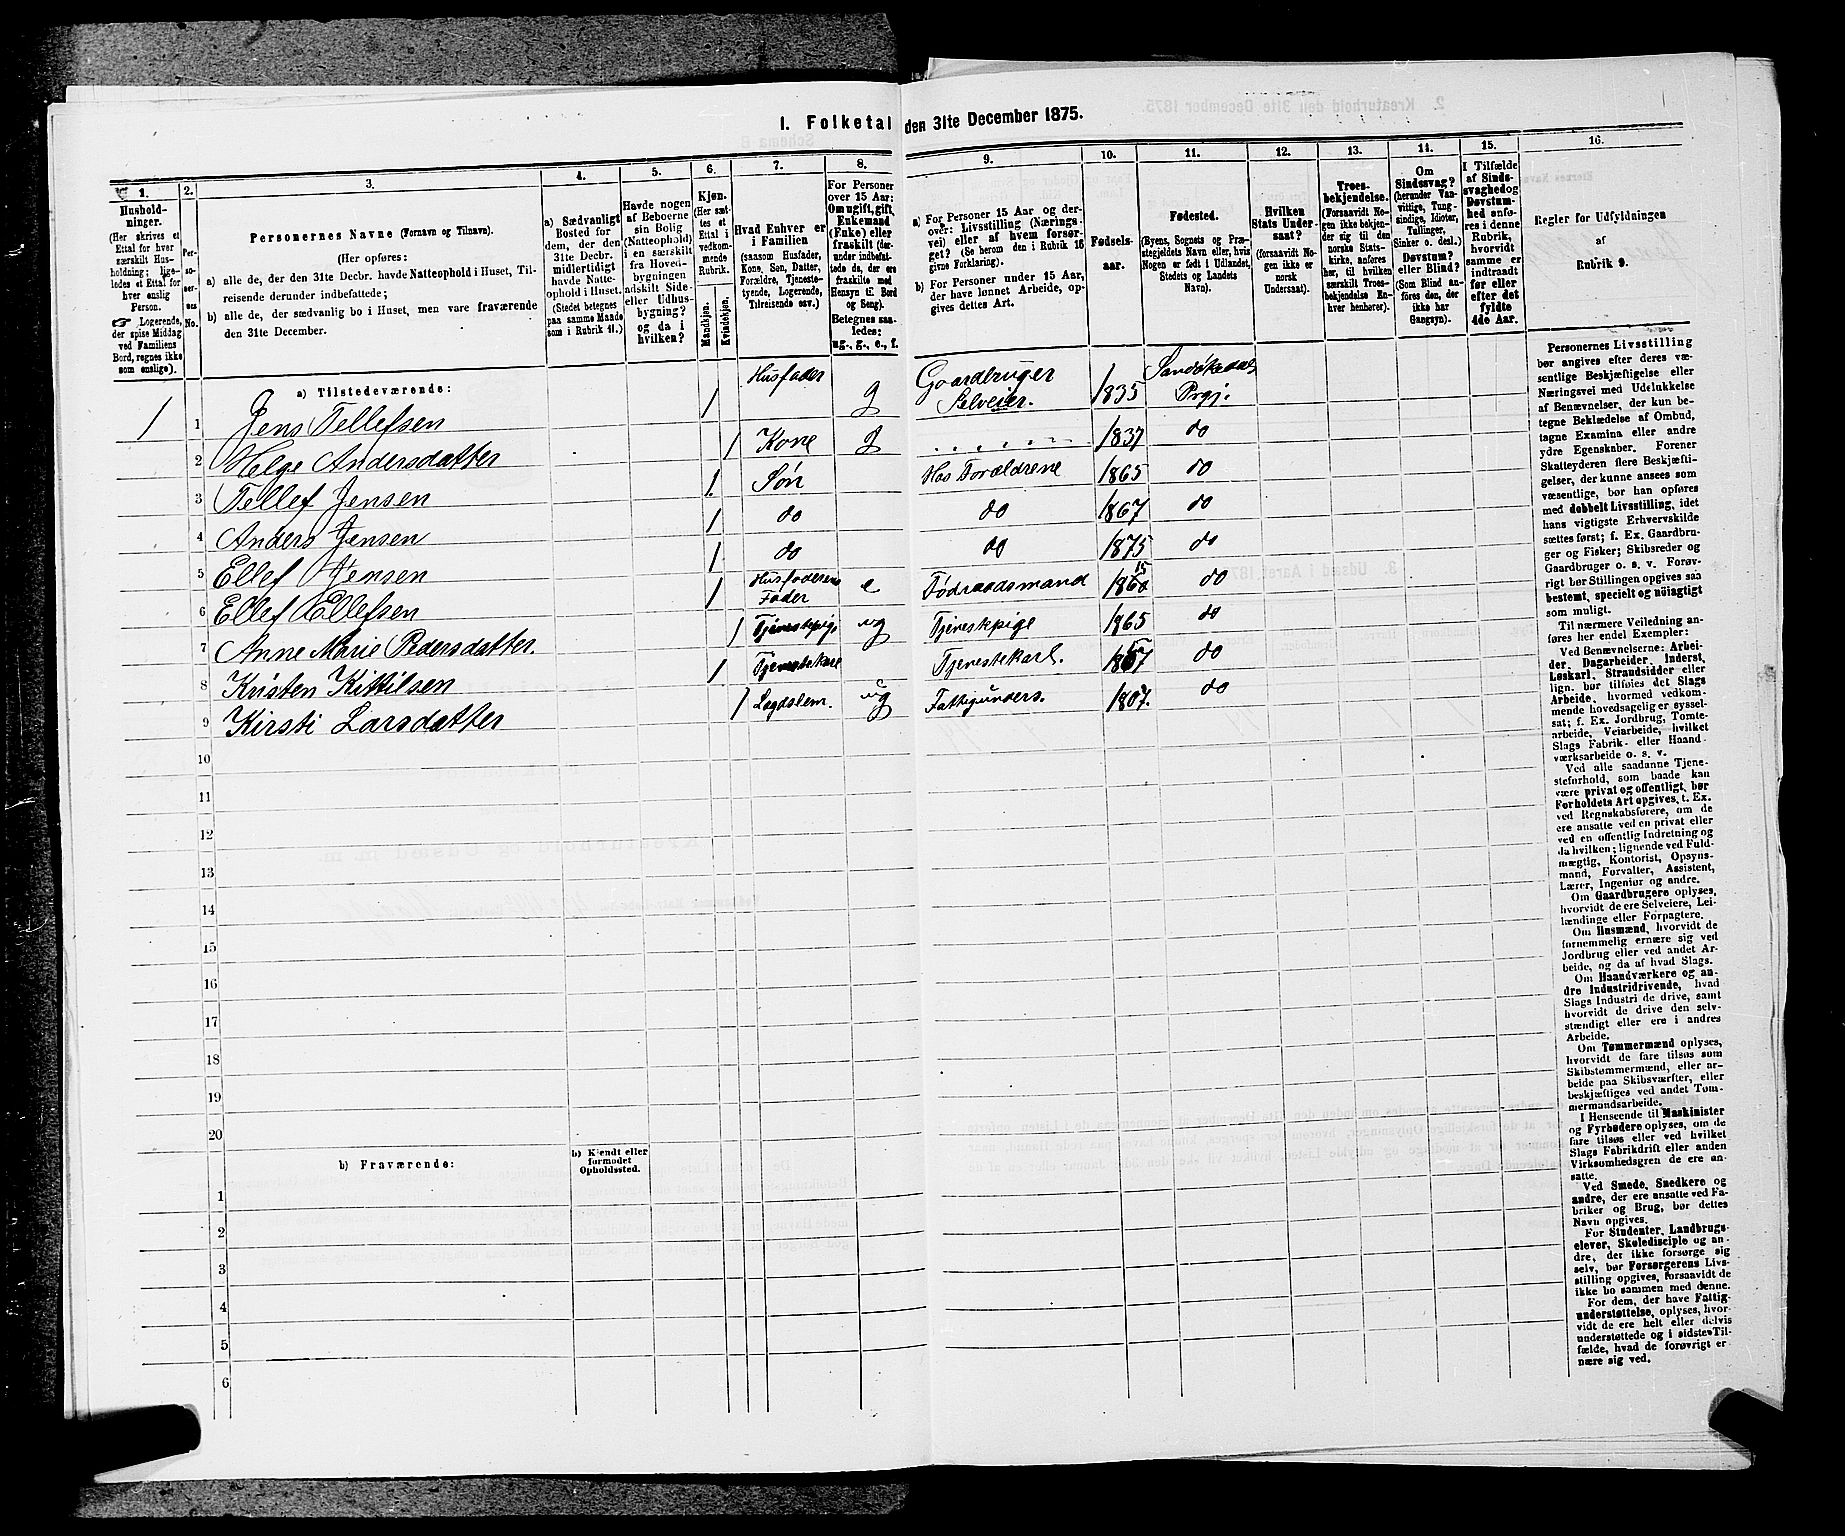 1. Folketal den 31te December 1875.
1.
Hushold-
ninger.
(Her skrives et
Ettal for hver
særskilt Hus-
holdning; lige-
ledes et Ettal for
hver enslig
Person.
☞ Logerende,
der spise Middag
ved Familiens
Bord, regnes ikke
som enslige).
2.
Per-
so-
ner-
nes
No.
3.
Personernes Navne (Fornavn og Tilnavn).
(Her opføres:
a) alle de, der den 31te Decbr. havde Natteophold i Huset, Til-
reisende derunder indbefattede;
b) alle de, der sædvanlig bo i Huset, men vare fraværende
den 31te December.
4.
a) Sædvanligt
Bosted for
dem, der den
31te Decbr.
midlertidigt
havde Natte-
ophold i Huset.
(Stedet betegnes
paa samme Maade
som i Rubrik 11.)
5.
Havde nogen
af Beboerne
sin Bolig
(Natteophold)
i en særskilt
fra Hoved-
bygningen
adskilt Side-
eller Udhus-
bygning?
og da i
hvilken?
6.
Kjøn.
(Her sæt-
tes et
Ettal i
vedkom-
mende
Rubrik.
Mandkjøn.
Kvindekjøn.
7.
Hvad Enhver er
i Familien
(saasom Husfader,
Kone, Søn, Datter,
Forældre, Tjeneste-
tyende, Logerende,
Tilreisende osv.)
8.
For Personer
over 15 Aar:
Om ugift, gift,
Enkemand
(Enke) eller
fraskilt (der-
under indbefat-
tede de, der ere
fraskilte med
Hensyn til Bord
og Seng).
Betegnes saa-
ledes:
ug., g., e., f.
9.
a) For Personer 15 Aar og der-
over: Livsstilling (Nærings-
vei) eller af hvem forsør-
get? (Se herom den i Rubrik 16
givne Forklaring).
b) For Personer under 15 Aar,
der have lønnet Arbeide, op-
gives dettes Art.
10.
Fødsels-
aar.
11.
Fødested.
(Byens, Sognets og Præ-
stegjeldets Navn eller, hvis
Nogen er født i Udlandet,
Stedets og Landets
Navn).
12.
Hvilken
Stats Under-
saat?
(forsaavidt No-
gen ikke er
norsk
Undersaat).
13.
Troes-
bekjendelse.
(Forsaavidt No-
gen ikke bekjen-
der sig til den
norske Stats-
kirke, anføres
her, til hvilken
særskilt Troes-
bekjendelse En-
hver henhører).
14.
Om
Sindssvag?
(herunder Van-
vittige, Tung-
sindige, Idioter,
Tullinger,
Sinker o. desl.)
Døvstum?
eller Blind?
(Som Blind an-
føres den, der
ikke har
Gangsyn).
15.
I Tilfælde
af Sinds-
svaghed og
Døvstum-
hed anfø-
res i denne
Rubrik,
hvorvidt
samme er
indtraadt
før eller
efter det
fyldte
4de Aar.
16.
Regler for Udfyldningen
af
Rubrik 9.
a) Tilstedeværende:
1 1 Jens Tellefsen 1 Husfader g Gaardbruger Selveier. 1835 Sandøkedals Prgj.
2 Helge Andersdatter 1 Kone g 1837 do
3 Tellef Jensen 1. Søn Hos Forældrene 1865 do
4 Anders Jensen 1 do do 1867 do
5 Ellef Jensen 1 do do 1875 do
6 Ellef Ellefsen 1 Husfaderens Fader e Födraadsmand do
7 Anne Marie Pedersdatter. 1 ug Tjenestpige 1865 do
8 Kristen Kittilsen 1 Tjenestekarl Tjenestekarl. do
9 Kirsti Larsdatter 1 Lægdslem. ug Fattigunders. 1807. do
10
11
12
13
14
15
16
17
18
19
20
b) Fraværende:
b) Kjendt eller
formodet
Opholdssted.
1
2
3
4
5
6
Personernes Livsstilling
bør angives efter deres væ-
sentlige Beskjæftigelse eller
Næringsvei med Udelukkelse
af Benævnelser, der kun be-
tegne Beklædelse af Ombud,
tagne Examina eller andre
ydre Egenskaber. Forener
Skatteyderen flere Beskjæfti-
gelser, der kunne ansees som
væsentlige, bør han opføres
med dobbelt Livsstilling, idet
hans vigtigste Erhvervskilde
sættes først; f. Ex. Gaardbru-
ger og Fisker; Skibsreder og
Gaardbruger o. s. v. Forøv-
rigt bør Stillingen opgives saa
bestemt, specielt og nøiagtigt
som muligt.
Til nærmere Veiledning an-
føres her endel Exempler:
Ved Benævnelserne: Arbei-
der, Dagarbeider, Inderst,
Løskarl, Strandsidder eller
lign. bør tilføies det Slags
Arbeide, hvormed vedkom-
mende hovedsagelig er syssel-
sat; f. Ex. Jordbrug, Tomte-
arbeide, Veiarbeide, hvilket
Slags Fabrik- eller Haand-
værksarbeide o. s. v.
Ved alle saadanne Tjene-
steforhold, som baade kan
være privat og offentligt, bør
Forholdets Art opgives, t. Ex.
ved Regnskabsførere, om de
ere ansatte ved en privat eller
en offentlig Indretning og
da hvilken; lignende ved Fuld-
mægtig, Kontorist, Opsyns-
mand, Forvalter, Assistent,
Lærer, Ingeniør og andre.
Om Gaardbrugere oplyses,
hvorvidt de ere Selveiere, Lei-
lændinge eller Forpagtere.
Om Husmænd, hvorvidt de
fornemmelig ernære sig ved
Jordbrug eller ved andet Ar-
beide, og da af hvad Slags.
Om Haandværkere og an-
dre Industridrivende, hvad
Slags Industri de drive, samt
hvorvidt de drive den selv-
stændigt eller ere i andres
Arbeide.
Om Tømmermænd oplyses,
hvorvidt de fare tilsøs som
Skibstømmermænd, eller ar-
beide paa Skibsværfter, eller
beskjæftiges ved andet Tøm-
mermandsarbeide.
I Henseende til Maskinister
og Fyrbødere oplyses, om de
fare tilsøs eller ved hvilket
Slags Fabrikdrift eller anden
Virksomhedsgren de ere an-
satte.
Ved Smede, Snedkere og
andre, der ere ansatte ved Fa-
briker og Brug, bør dettes
Navn opgives.
For Studenter, Landbrugs-
elever, Skoledisciple og an-
dre, der ikke forsørge sig
selv, bør Forsørgerens Livs-
stilling opgives, forsaavidt de
ikke bo sammen med denne.
For dem, der have Fattig-
understøttelse, oplyses, hvor-
vidt de ere helt eller delvis
understøttede og i sidste Til-
fælde, hvad de forøvrigt er-
nære sig ved.